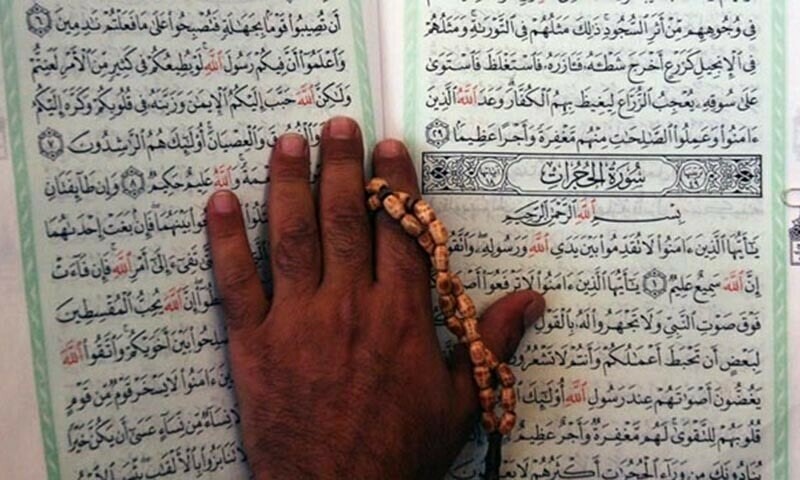 فِى وُجُوهِهِم مِّنْ أَثَرِ ٱلسُّجُودِ ذَٰلِكَ مَثَلُهُمْ فِى ٱلتَّوْرَىٰةِ وَمَثَلُهُمْ
فِى ٱلْإِنجِيلِ كَزَرْعٍ أَخْرَجَ شَطْـَٔهُۥ فَـَٔازَرَهُۥ فَٱسْتَغْلَظَ فَٱسْتَوَىٰ
عَلَىٰ سُوقِهِۦ يُعْجِبُ ٱلزُّرَّاعَ لِيَغِيظَ بِهِمُ ٱلْكُفَّارَ وَعَدَ ٱللَّهُ ٱلَّذِينَ
ءَامَنُوا۟ وَعَمِلُوا۟ ٱلصَّٰلِحَٰتِ مِنْهُم مَّغْفِرَةً وَأَجْرًا عَظِيمًۢا ٢٩
سُورَةُ الحُجُرَاتِ
بِسْمِ ٱللَّهِ ٱلرَّحْمَٰنِ ٱلرَّحِيمِ
يَٰٓأَيُّهَا ٱلَّذِينَ ءَامَنُوا۟ لَا تُقَدِّمُوا۟ بَيْنَ يَدَىِ ٱللَّهِ وَرَسُولِهِۦ وَٱتَّقُوا۟
إِنَّ ٱللَّهَ سَمِيعٌ عَلِيمٌ ١ يَٰٓأَيُّهَا ٱلَّذِينَ ءَامَنُوا۟ لَا تَرْفَعُوٓا۟
فَوْقَ صَوْتِ ٱلنَّبِىِّ وَلَا تَجْهَرُوا۟ لَهُۥ بِٱلْقَوْلِ
لِبَعْضٍ أَن تَحْبَطَ أَعْمَٰلُكُمْ وَأَنتُمْ لَا تَشْعُرُونَ
يَغُضُّونَ أَصْوَٰتَهُمْ عِندَ رَسُولِ ٱللَّهِ أُو۟لَٰٓئِكَ
قُلُوبَهُمْ لِلتَّقْوَىٰ لَهُم مَّغْفِرَةٌ وَأَجْرٌ عَظِيمٌ
يُنَادُونَكَ مِن وَرَآءِ ٱلْحُجُرَٰتِ أَكْثَرُهُمْ لَا
أَن تُصِيبُوا۟ قَوْمًۢا بِجَهَٰلَةٍ فَتُصْبِحُوا۟ عَلَىٰ مَا فَعَلْتُمْ نَٰدِمِينَ ٦
وَٱعْلَمُوٓا۟ أَنَّ فِيكُمْ رَسُولَ ٱللَّهِ لَوْ يُطِيعُكُمْ فِى كَثِيرٍ مِّنَ ٱلْأَمْرِ لَعَنِتُّمْ
وَلَٰكِنَّ ٱللَّهَ حَبَّبَ إِلَيْكُمُ ٱلْإِيمَٰنَ وَزَيَّنَهُۥ فِى قُلُوبِكُمْ وَكَرَّهَ إِلَيْكُمُ
وَٱلْفُسُوقَ وَٱلْعِصْيَانَ أُو۟لَٰٓئِكَ هُمُ ٱلرَّٰشِدُونَ ٧
وَٱللَّهُ عَلِيمٌ حَكِيمٌ ٨ وَإِن طَآئِفَتَانِ
بَيْنَهُمَا فَإِنۢ بَغَتْ إِحْدَىٰهُمَا
تَفِىٓءَ إِلَىٰٓ أَمْرِ ٱللَّهِ فَإِن فَآءَتْ
إِنَّ ٱللَّهَ يُحِبُّ ٱلْمُقْسِطِينَ
بَيْنَ أَخَوَيْكُمْ وَٱتَّقُوا۟ ٱللَّهَ
ءَامَنُوا۟ لَا يَسْخَرْ قَوْمٌ مِّن قَوْمٍ
نِسَآءٌ مِّن نِّسَآءٍ عَسَىٰٓ أَن يَكُنَّ خَيْرًا
تَنَابَزُوا۟ بِٱلْأَلْقَٰبِ بِئْسَ ٱلِٱسْمُ